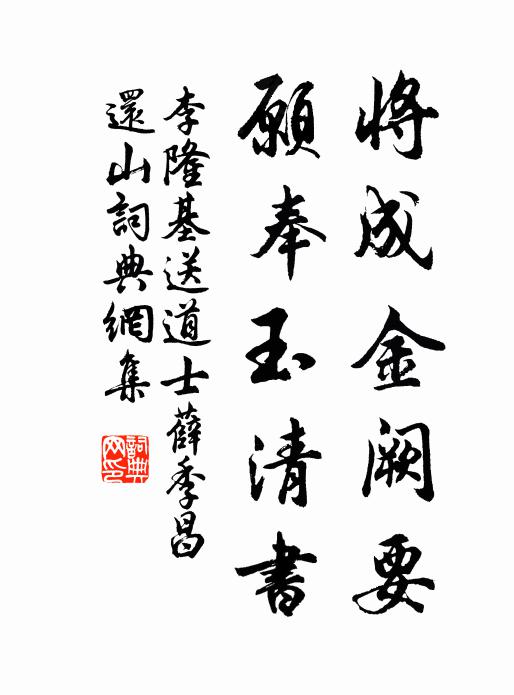 將成金闕要
願奉玉清書
李隆基送道士薛季昌
還山詞典網集
詞典網印